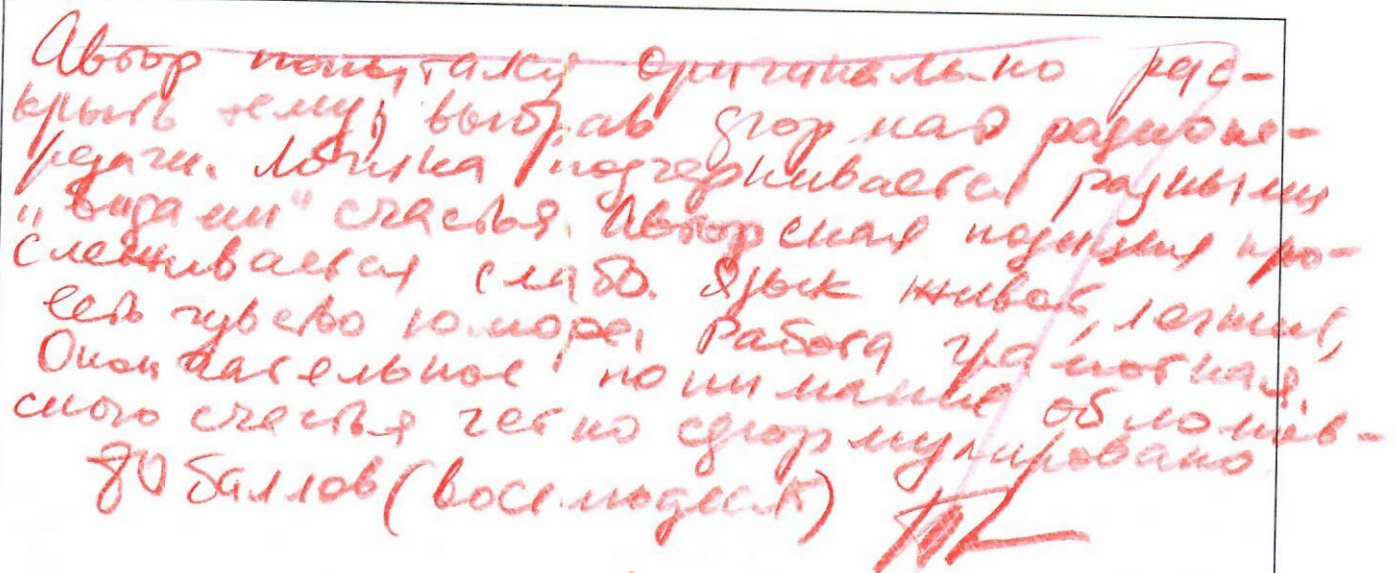 Автор попытался оригинально рас-
крыть тему, выбрав формат радиопе-
редачи. Логика подчеркивается разными
„видами" счастья. Авторская позиция про-
слеживается слабо. Язык живой, легкий,
есть чувство юмора. Работа грамотная.
Окончательное понимание обломов-
ского счастья четко сформулировано
80 баллов (восемьдесят)